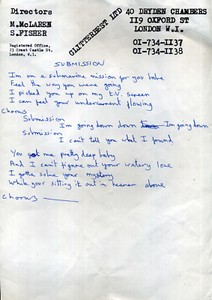 Directors
M. McLAREN
S. FISHER
Registered Office,
23 Great Castle St,
London, W.1.
GLITTERBEST LTD
40 DRYDEN CHAMBERS
119 OXFORD ST
LONDON W.1.
01-734-1137
01-734-1138
SUBMISSION
I'm on a submarine mission for you babe
Feel the way you were going
I picked you up on my t.v. screen
I can feel your undercurrent flowing
Chorus
Submission
I'm going down down I'm going down
Submission
I can't tell you what I found
You got me pretty deep baby
And I can't figure out your watery love
I gotta solve your mystery
While your sitting it out in heaven above
Chorus